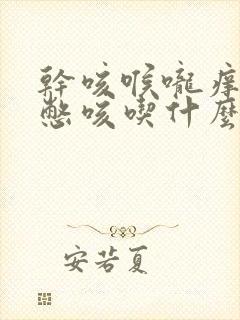 幹咳喉嚨癢
憋咳喫什麼
安若夏